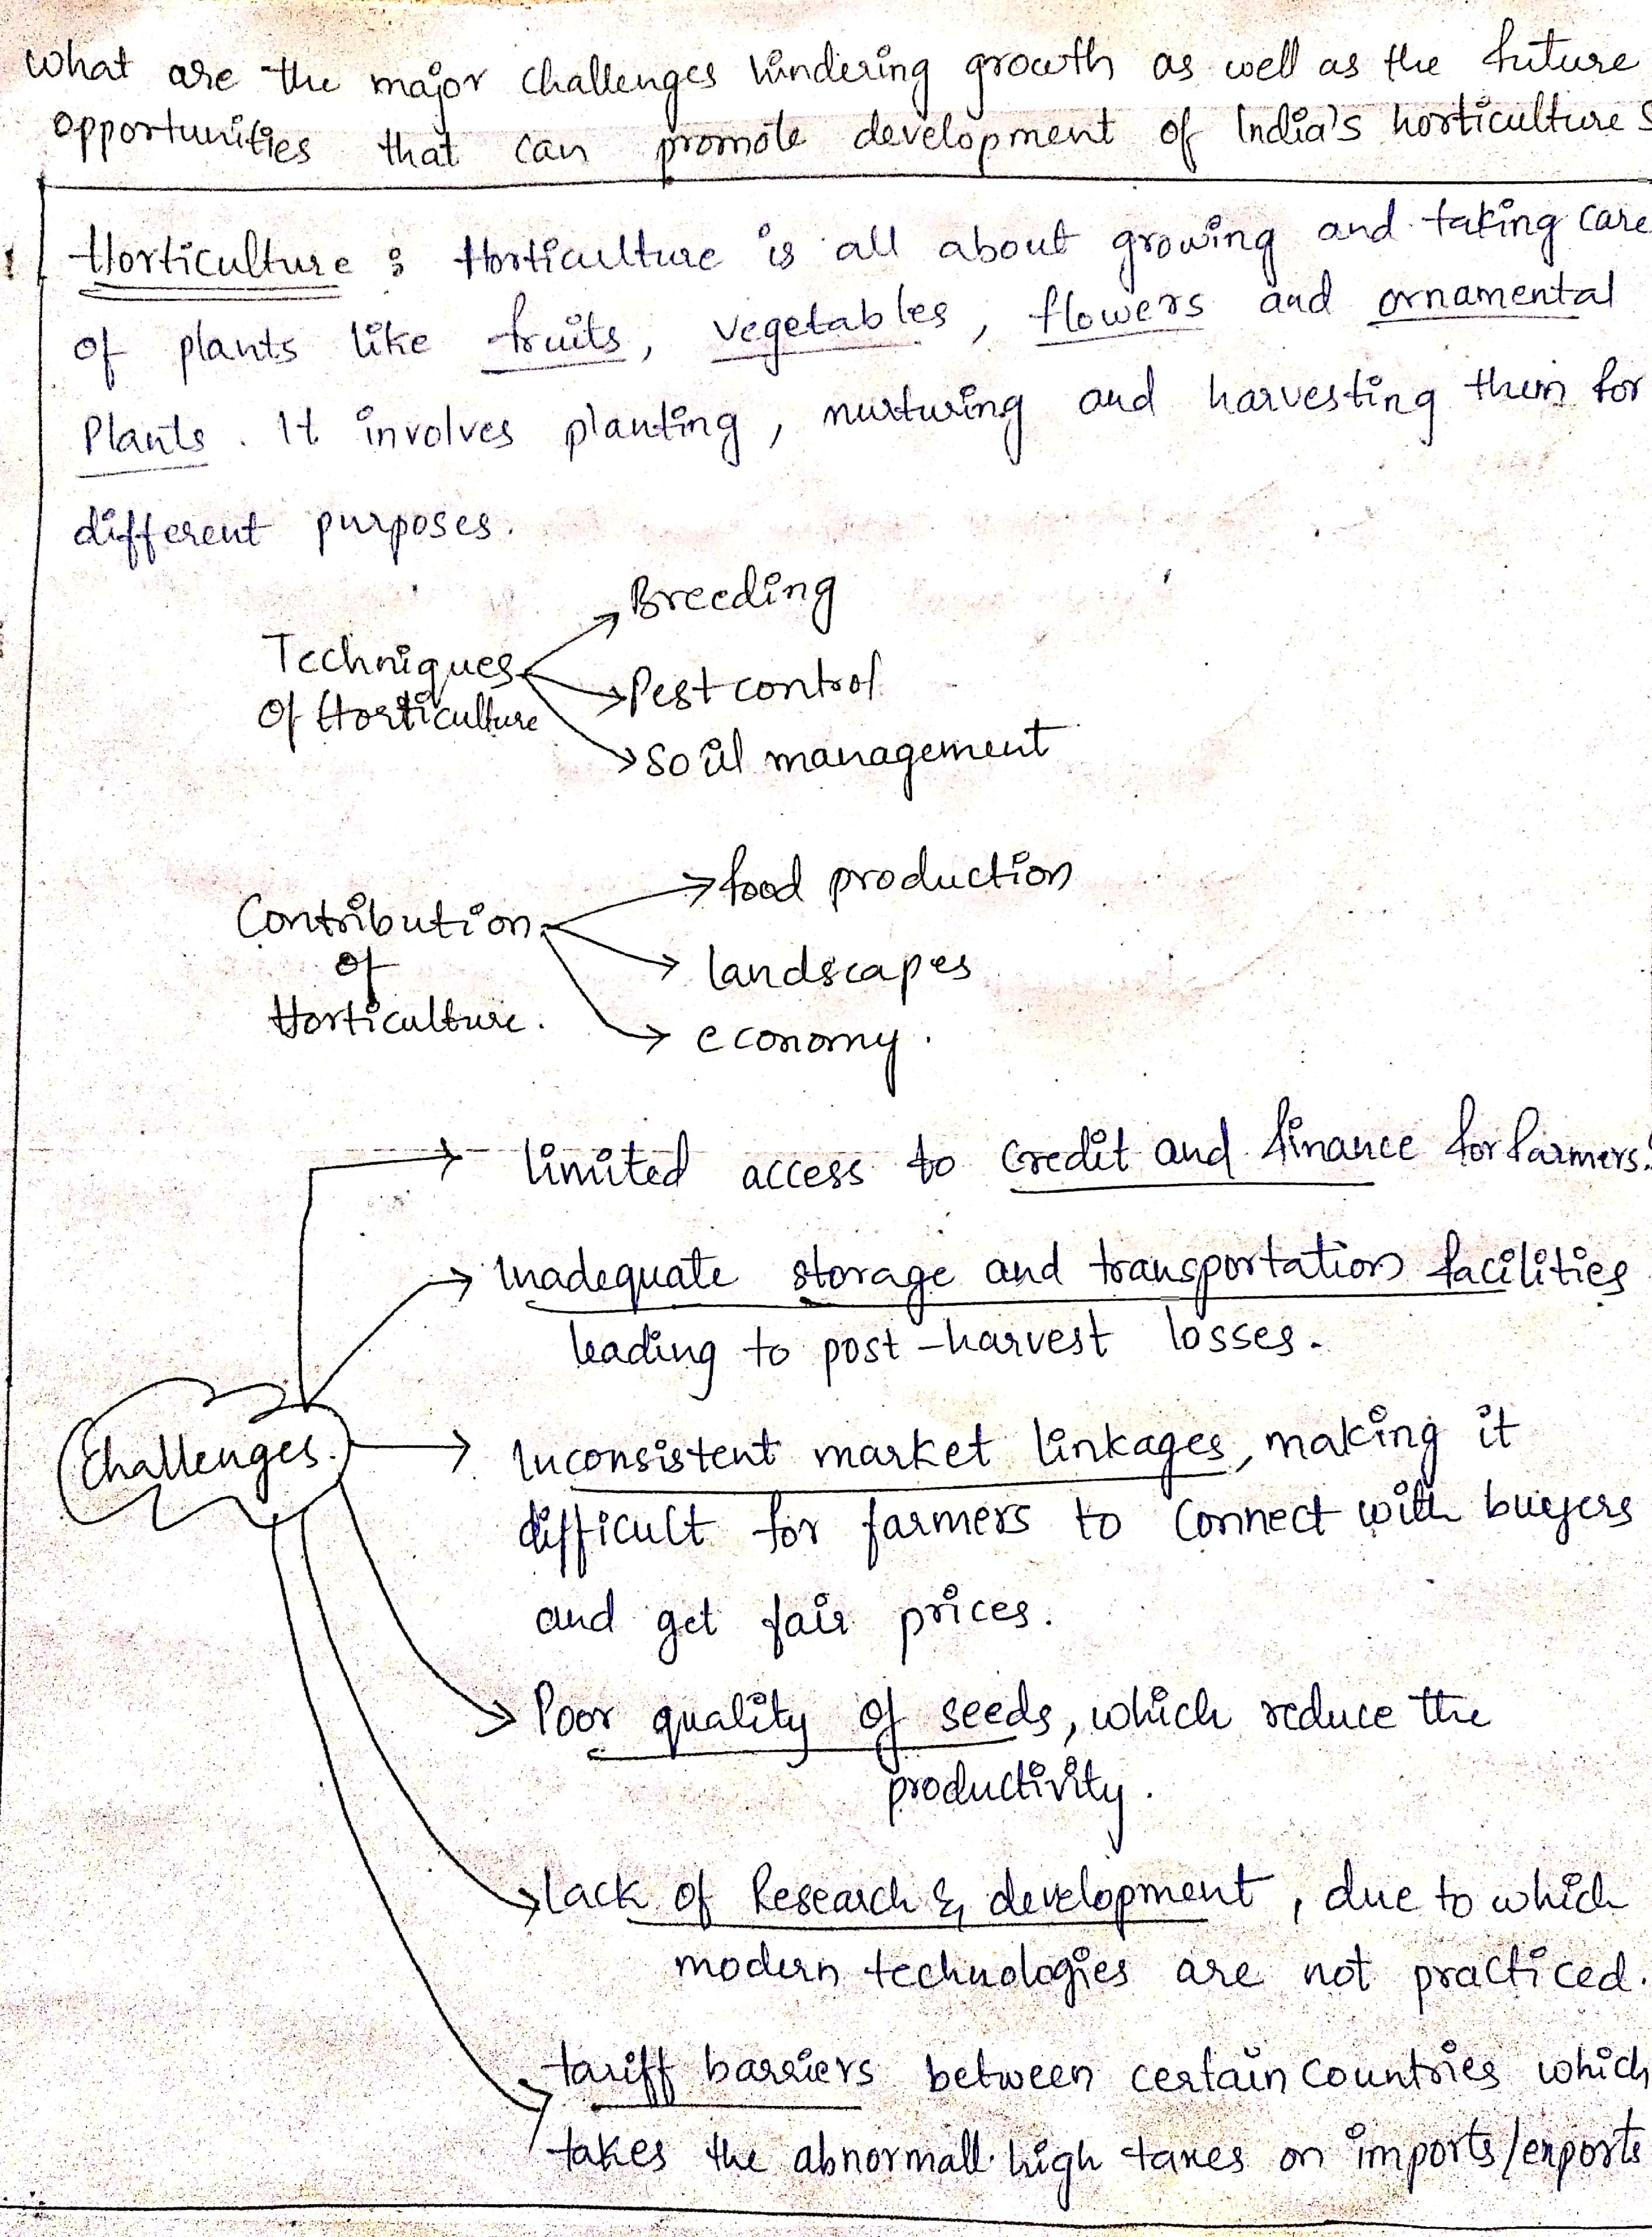 What are the major challenges hindering growth as well as the future
opportunities that can promote development of India's horticulture
Horticulture : Horticulture is all about growing and taking care
of plants like fruits, vegetables, flowers and ornamental
Plants. It involves planting, nurturing and harvesting them for
different purposes.
Techniques
of Horticulture
Breeding
Pest control
Soil management
Contribution
of
Horticulture.
food production
landscapes
economy.
Challenges.
limited access to credit and finance for farmers.
Inadequate storage and transportation facilities
leading to post-harvest losses.
Inconsistent market linkages, making it
difficult for farmers to connect with buyers
and get fair prices.
Poor quality of seeds, which reduce the
productivity.
lack of Research & development, due to which
modern technologies are not practiced.
tariff barriers between certain countries which
takes the abnormall high taxes on imports/exports